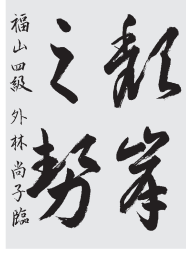 頽峯
之勢
福山 四級 外林尚子臨